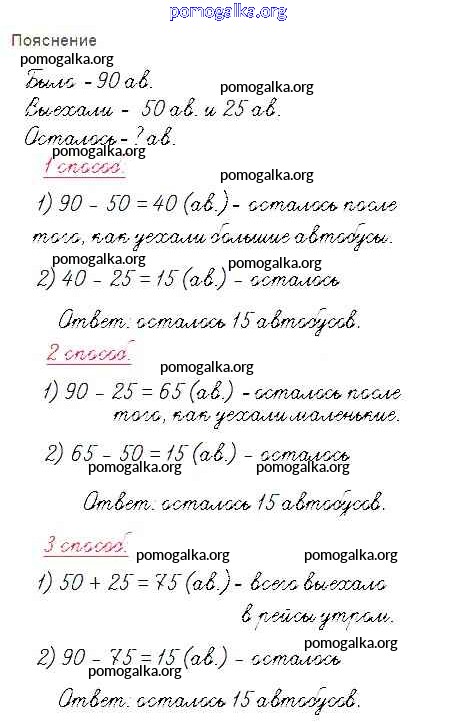 pomogalka.org
Пояснение
pomogalka.org
Было - 90 ав.
pomogalka.org
Выехали - 50 ав. и 25 ав.
Осталось - ? ав.
pomogalka.org
1 способ.
pomogalka.org
1) 90 - 50 = 40 (ав.) - осталось после
того, как уехали большие автобусы.
pomogalka.org pomogalka.org
2) 40 - 25 = 15 (ав.) - осталось
Ответ: осталось 15 автобусов.
2 способ.
pomogalka.org
1) 90 - 25 = 65 (ав.) - осталось после
того, как уехали маленькие.
2) 65 - 50 = 15 (ав.) - осталось
pomogalka.org pomogalka.org
Ответ: осталось 15 автобусов.
3 способ.
pomogalka.org pomogalka.org
1) 50 + 25 = 75 (ав.) - всего выехало
в рейсы утром.
pomogalka.org
2) 90 - 75 = 15 (ав.) - осталось
pomogalka.org
Ответ: осталось 15 автобусов.